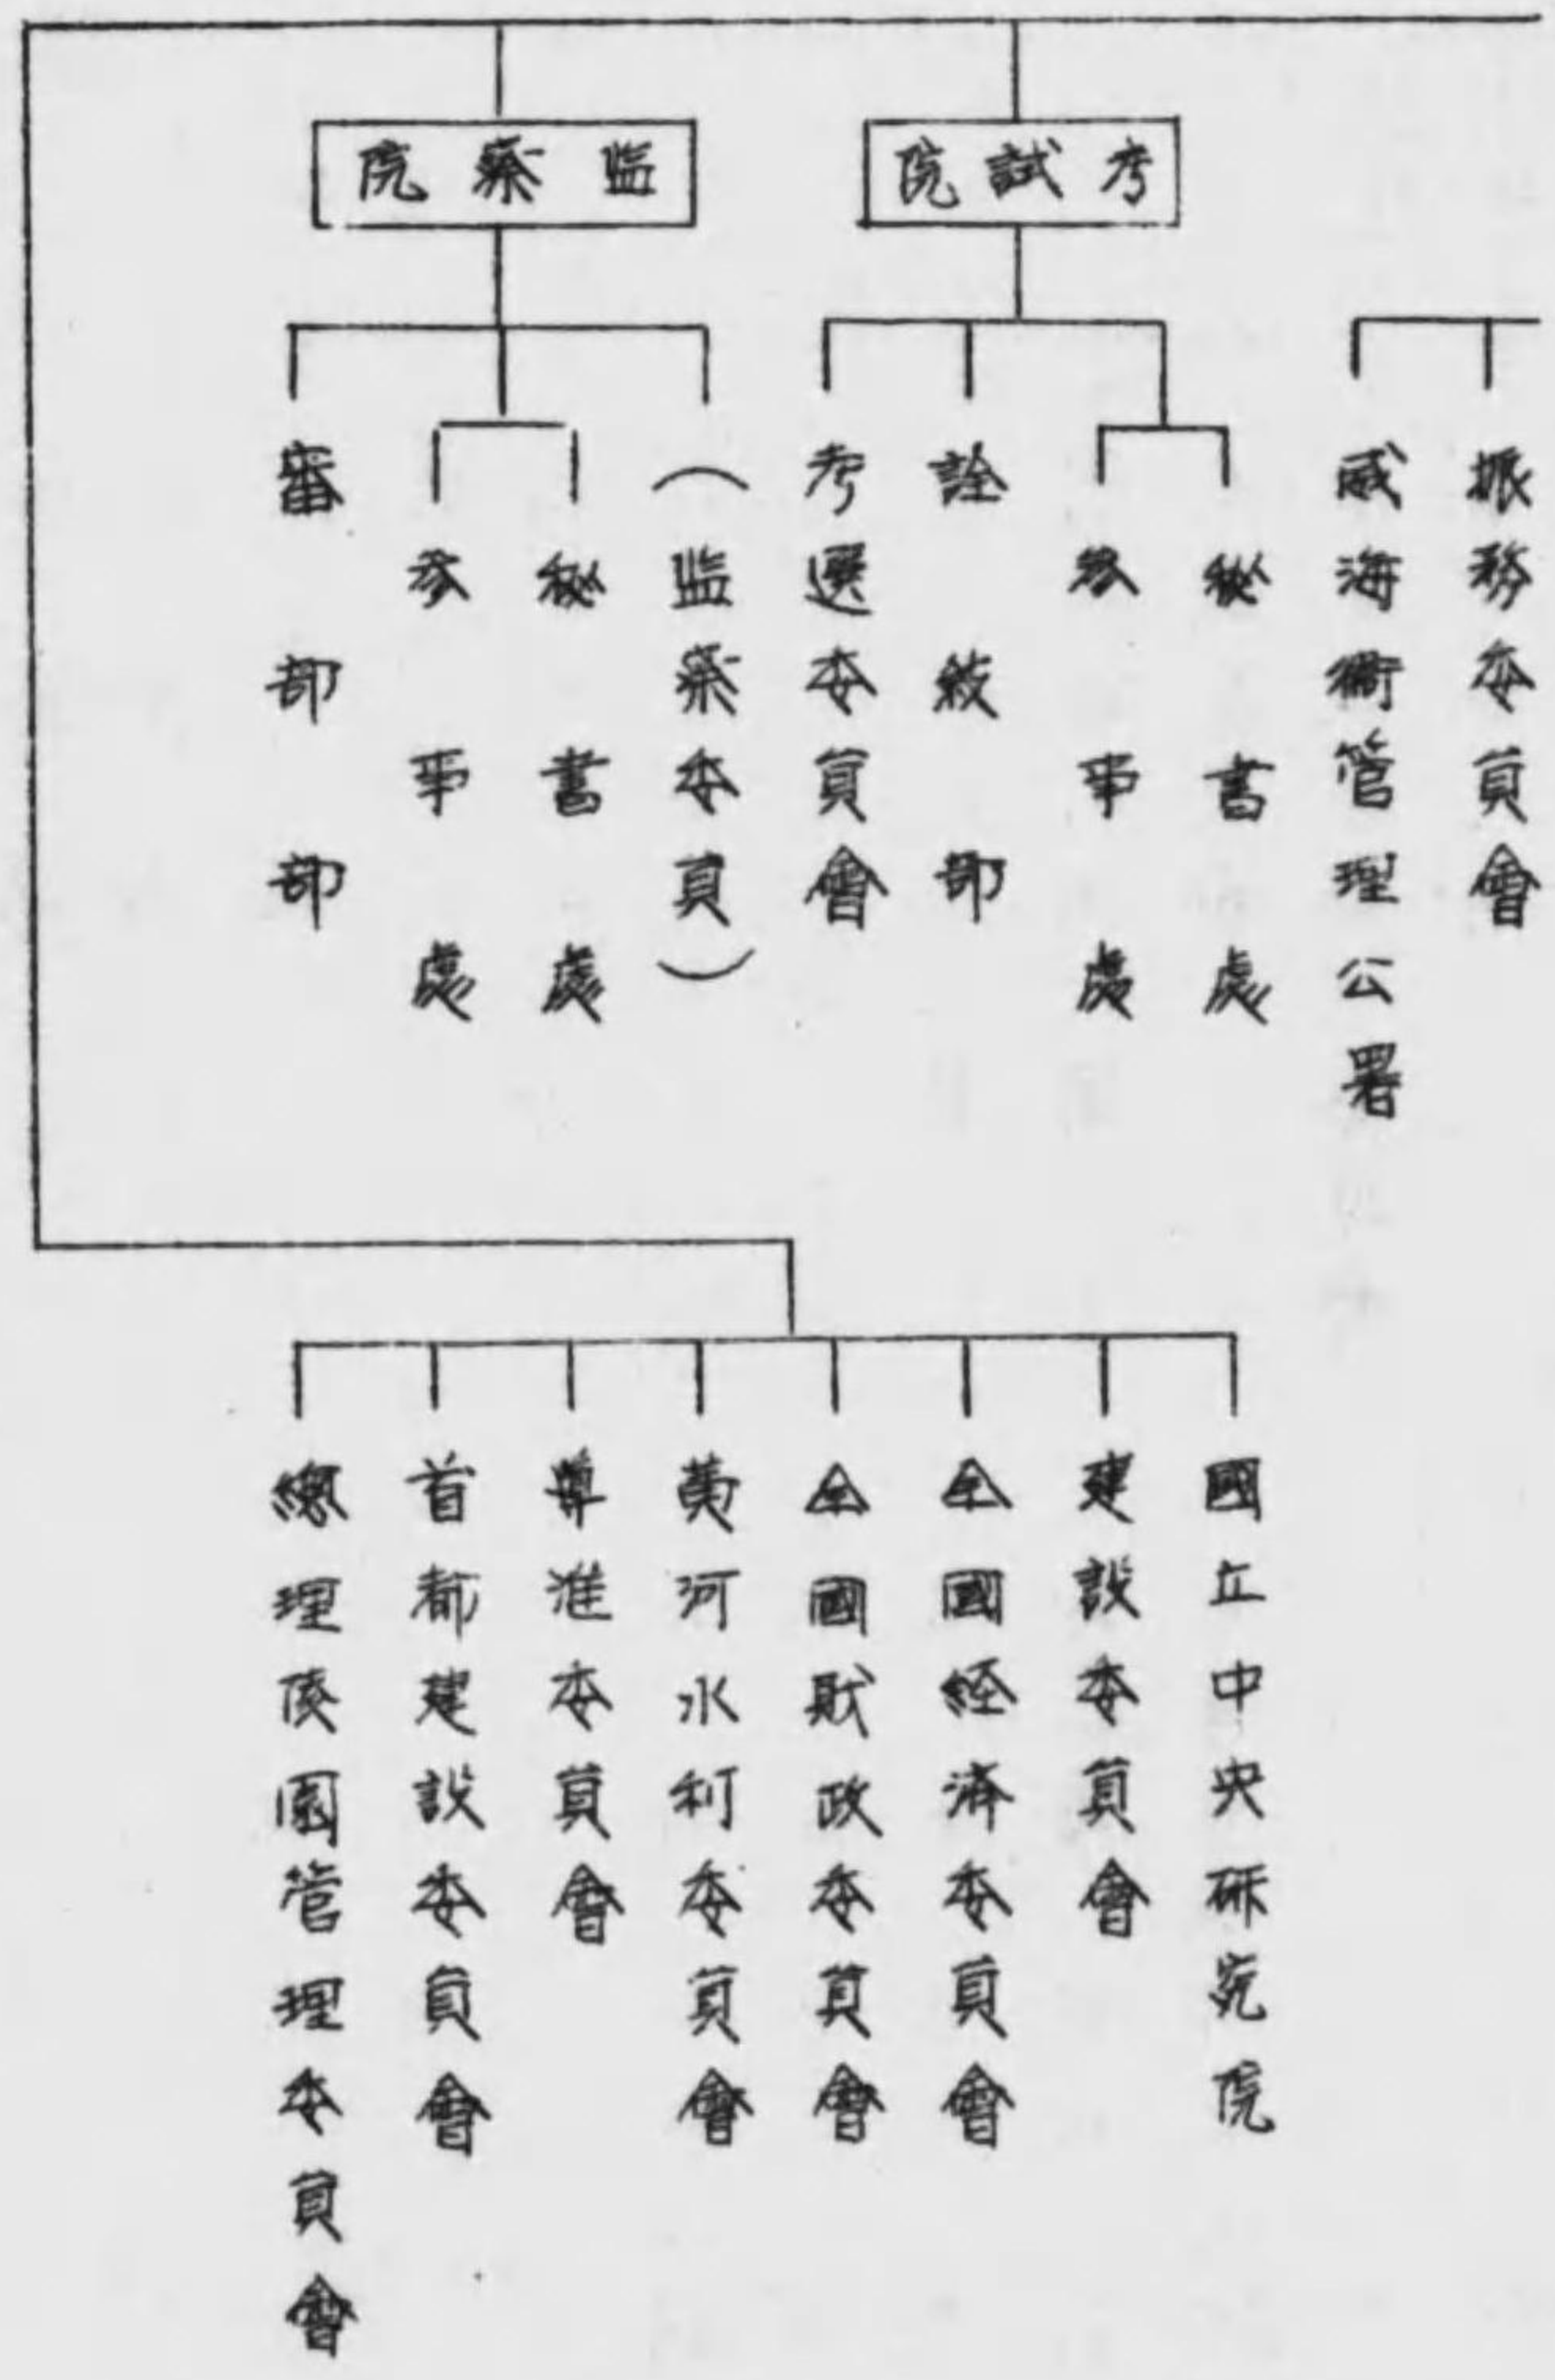 考試院
監察院
振務委員會
威海衛管理公署
秘書處
參事處
詮敘部
考選委員會
(監察委員)
秘書處
參事處
審部部
國立中央研究院
建設委員會
全國經濟委員會
全國財政委員會
黃河水利委員會
導淮委員會
首都建設委員會
總理陵園管理委員會